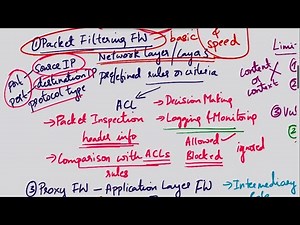 ① Packet Filtering FW → basic & speed
Network layer / layer 3
Source IP
destination IP
protocol type
predefined rules or criteria
ACL
→ Packet Inspection
header info
→ Decision Making
→ Logging & Monitoring
Allowed
Blocked
ignored
→ Comparison with ACLs
rules
③ Proxy FW — Application Layer FW → Intermediary
Limi
content
or
context
③ Vul